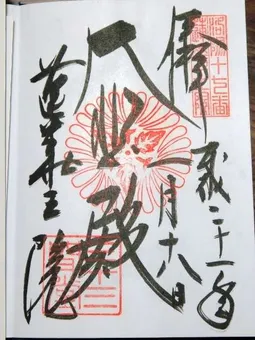 洛陽十七番
奉拝
平成二十一年
一月十八日
大悲殿
蓮華王院